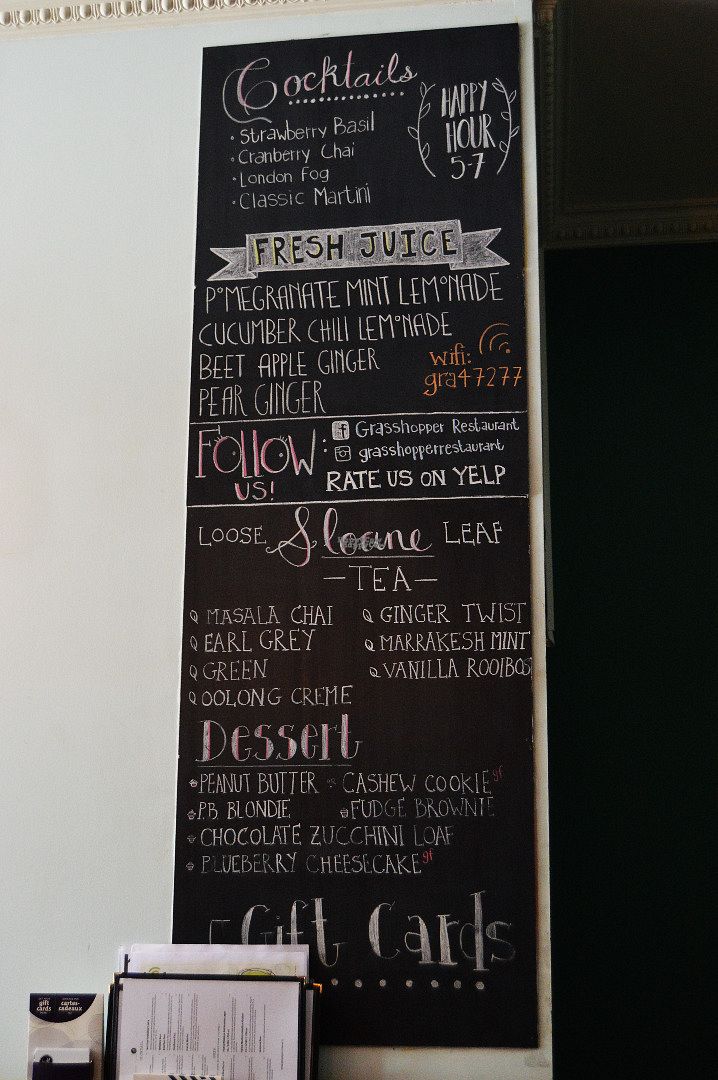 Cocktails
Strawberry Basil
Cranberry Chai
London Fog
Classic Martini
HAPPY
HOUR
5-7
FRESH JUICE
POMEGRANATE MINT LEMONADE
CUCUMBER CHILI LEMONADE
BEET APPLE GINGER
PEAR GINGER
Wifi:
gra47277
FOLLOW
US!
: Grasshopper Restaurant
grasshopperrestaurant
RATE US ON YELP
LOOSE Sloane LEAF
—TEA—
MASALA CHAI
EARL GREY
GREEN
OOLONG CREME
GINGER TWIST
MARRAKESH MINT
VANILLA ROOIBOS
Dessert
PEANUT BUTTER CASHEW COOKIE gf
P.B BLONDIE FUDGE BROWNIE
CHOCOLATE ZUCCHINI LOAF
BLUEBERRY CHEESECAKE gf
Gift Cards
gift
cards
cartes-
cadeaux